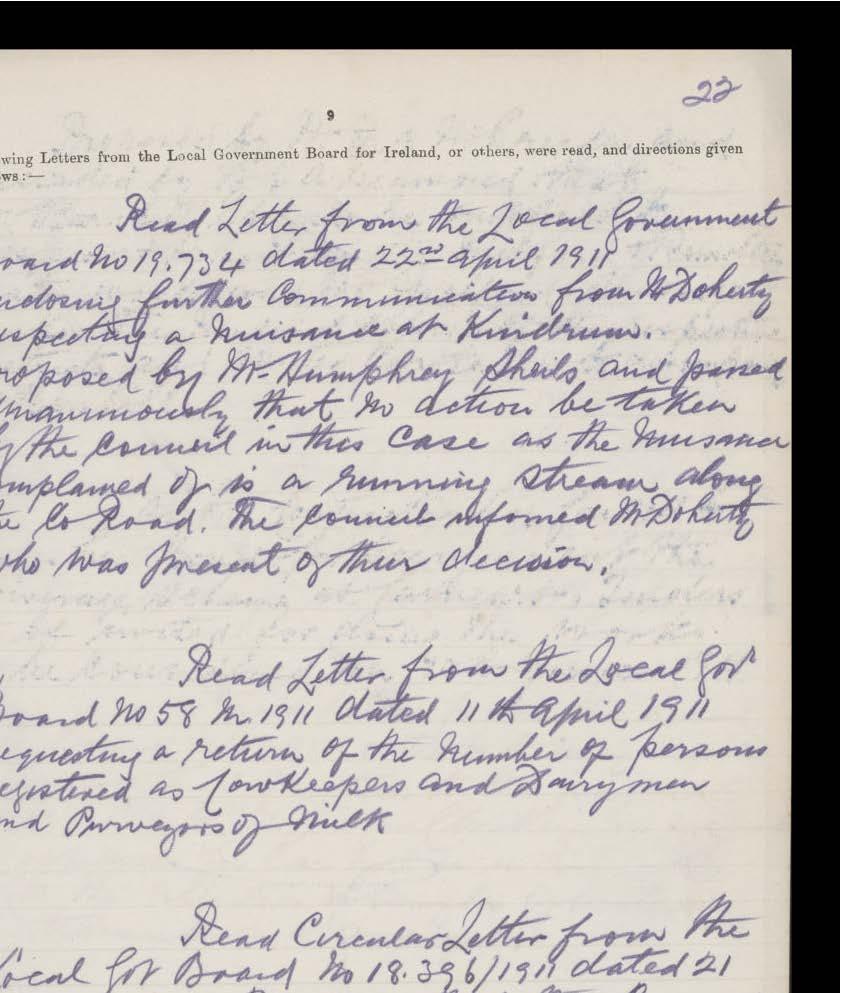 22
9
wing Letters from the Local Government Board for Ireland, or others, were read, and directions given
ws:—
Read Letter from the Local Government
oard No 19.734 dated 22nd April 1911
nclosing further Communication from Mr Doherty
especting a nuisance at Kindrum.
roposed by Mr Humphrey Sheils and passed
Unanimously that no action be taken
by the Council in this Case as the Nuisance
omplained of is a running stream along
he Co Road. The Council informed Mr Doherty
who was present of their decision.
Read Letter from the Local Govt
Board No 58 M. 1911 dated 11th April 1911
equesting a return of the number of persons
egistered as Cowkeepers and Dairymen
nd Purveyors of Milk
Read Circular Letter from the
Local Gov Board No 18.396/1911 dated 21